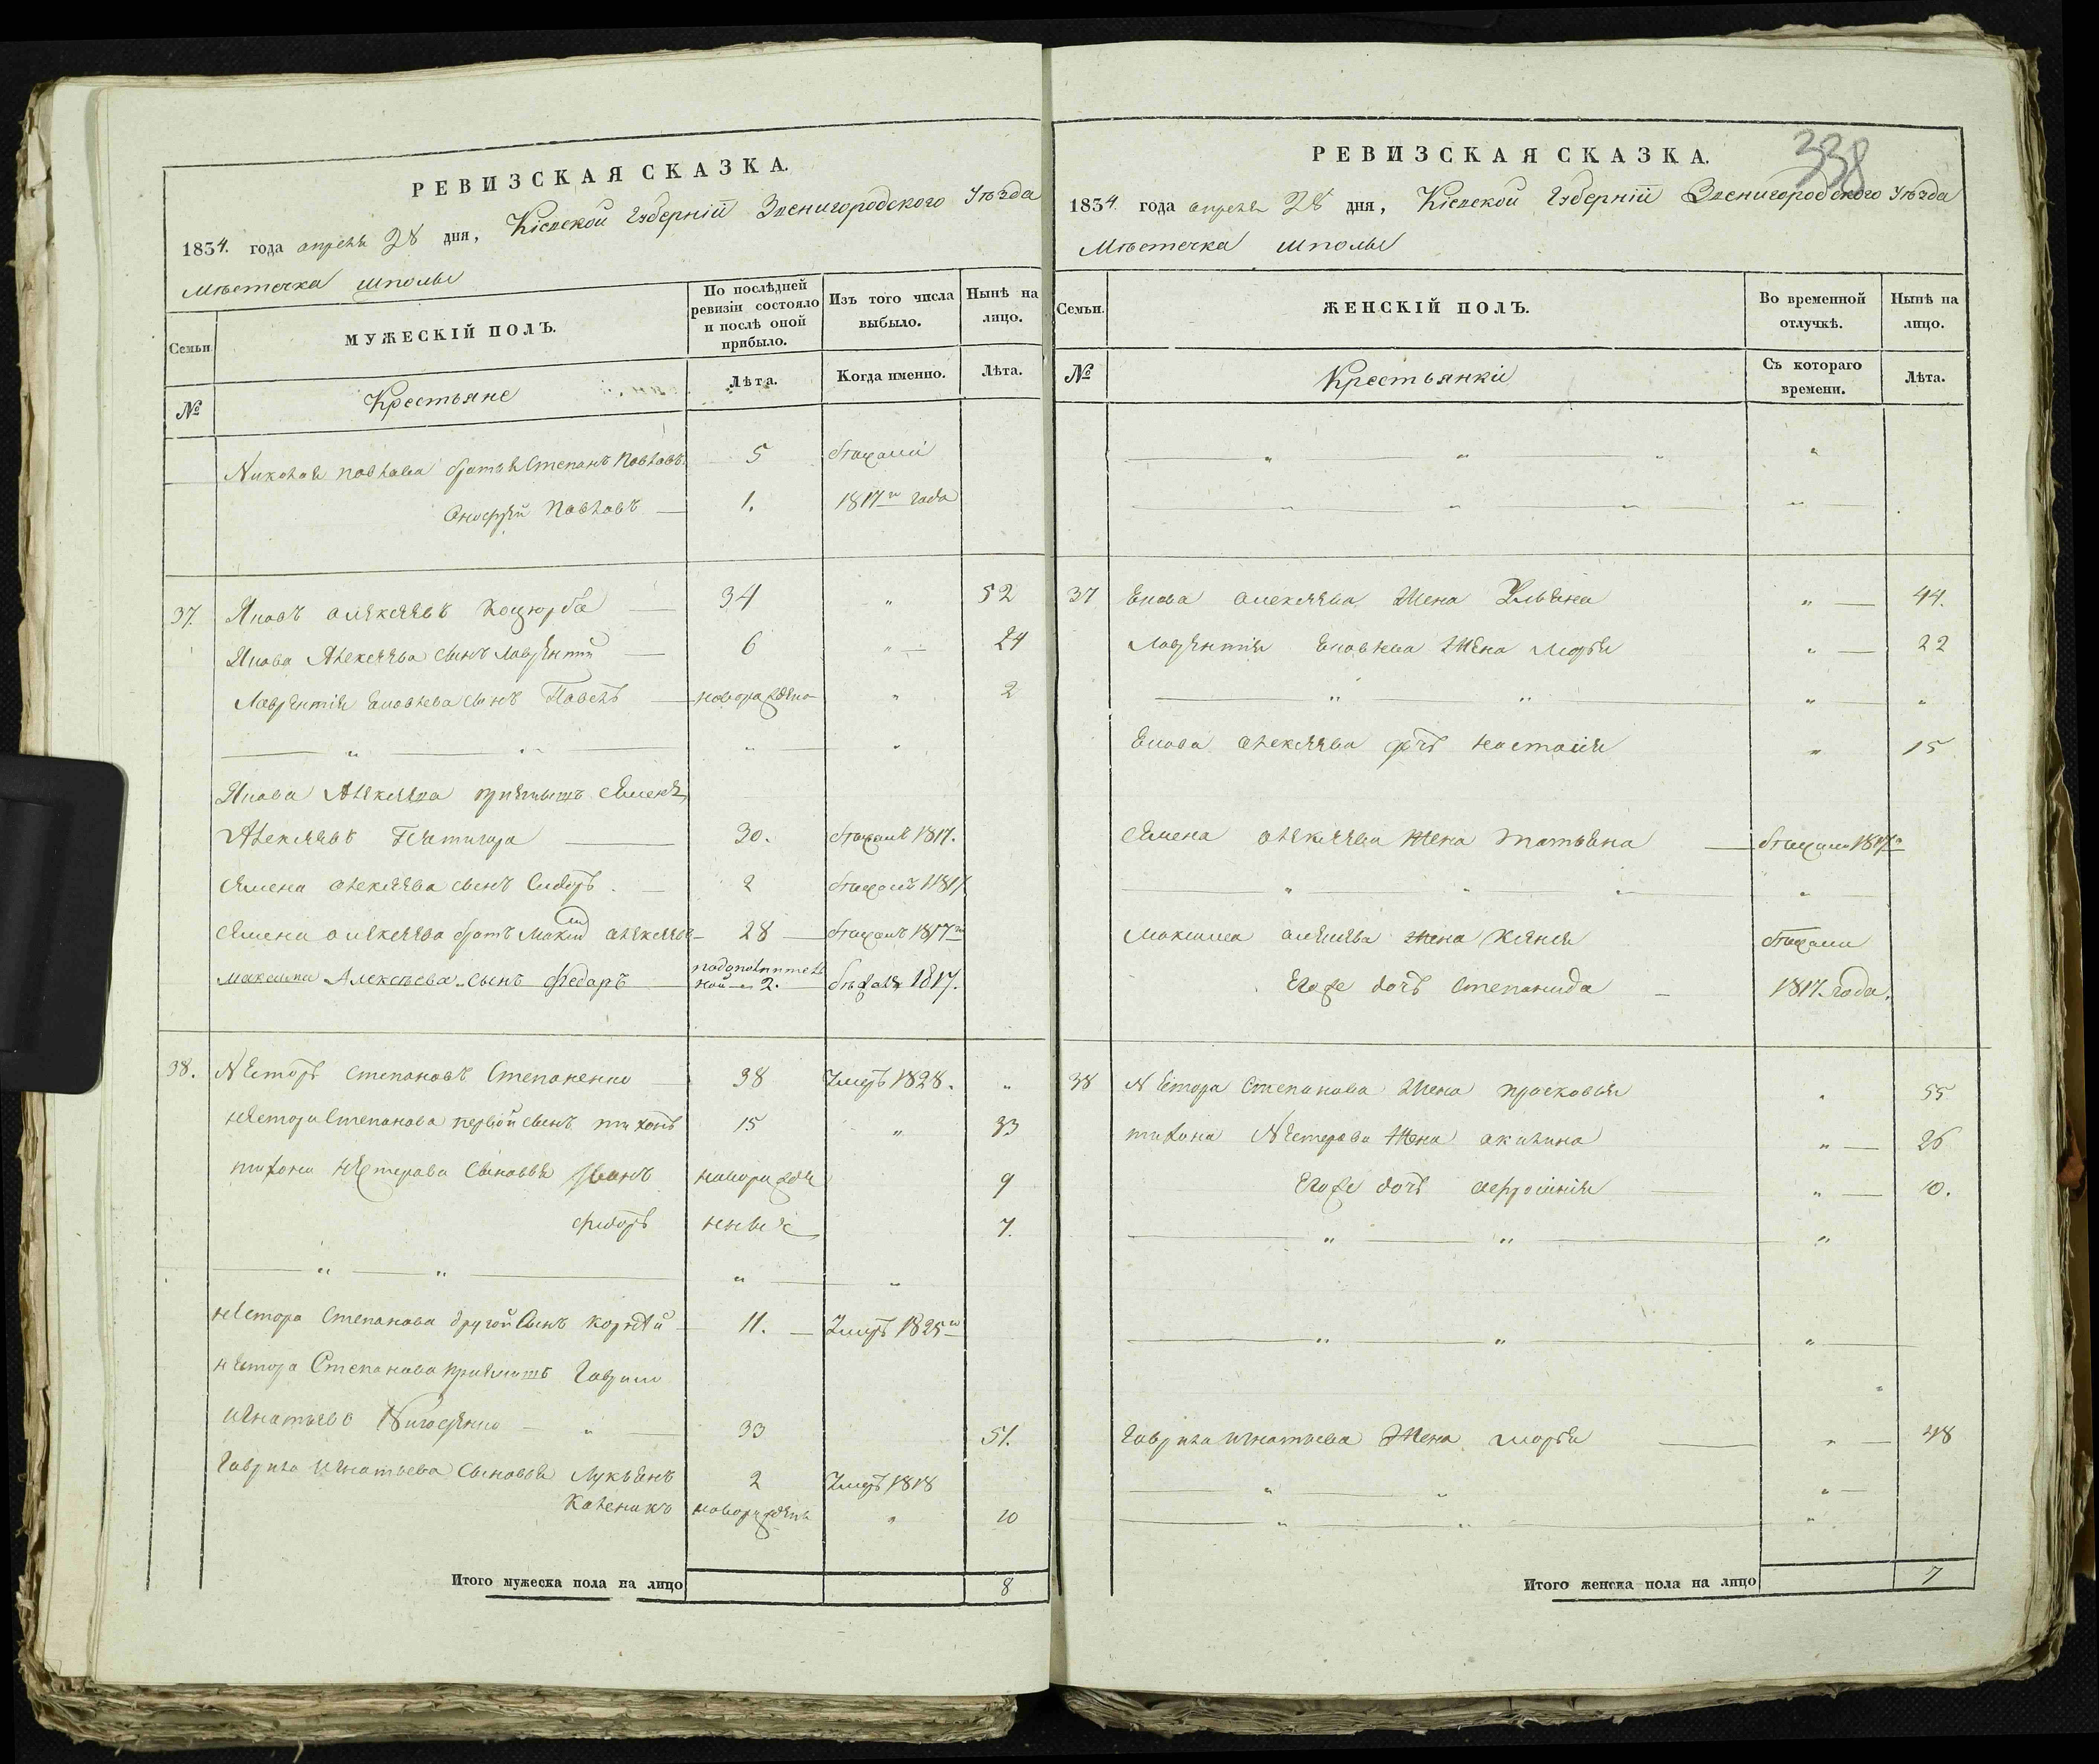 РЕВИЗСКАЯ СКАЗКА.
1834. года апреля 28 дня, Кіевской Губерніи Звенигородского Уѣзда
Мѣстечка Шполы
Семьи.
МУЖЕСКІЙ ПОЛЪ.
По послѣдней ревизіи состояло и послѣ оной прибыло.
Изъ того числа выбыло.
Нынѣ на лицо.
№
Крестьяне
Лѣта.
Когда именно.
Лѣта.
Николая Павлова братья Степанъ Павловъ 5 бѣжали
Онофрій Павловъ 1. 1817го года
37. Яковъ Алексѣевъ Коцюрба 34 " 52
Якова Алексѣева сынъ Лаврентій 6 " 24
Лаврентія Яковлева сынъ Павелъ новорожденъ " 2
" " " "
Якова Алексѣева Семенъ
Алексѣевъ 30. 1817.
Семена Алексѣева сынъ Сидоръ 2 1817
Семена Алексѣева братъ Максим Алексѣевъ 28 1817го
Максима Алексѣева сынъ Федоръ 2. бѣжалъ 1817.
38. Несторъ Степановъ Степаненко 38 Умеръ 1828. "
Нестора Степанова первой сынъ Тихонъ 15 " 33
Тихона Нестерова сыновья Иванъ новорожде 9
Фидоръ нные 7.
" " " "
Нестора Степанова другой сынъ Корнѣй 11. Умеръ 1825го
Нестора Степанова Гаврило
Игнатьевъ 33 51.
Гаврила Игнатьева сыновья Лукьянъ 2 Умеръ 1818
Каленикъ новорожденъ " 10
Итого мужеска пола на лицо 8
338
РЕВИЗСКАЯ СКАЗКА.
1834. года апреля 28 дня, Кіевской Губерніи Звенигородского Уѣзда
Мѣстечка Шполы
Семьи.
ЖЕНСКІЙ ПОЛЪ.
Во временной отлучкѣ.
Нынѣ на лицо.
№
Крестьянки
Съ котораго времени.
Лѣта.
" " " "
" " " "
37 Якова Алексѣева жена Ульяна " 44.
Лаврентія Яковлева жена Марья " 22
" " " "
Якова Алексѣева дочь Настасія " 15
Семена Алексѣева жена Татьяна 1817го
" " " "
Максима жена Ксенія бѣжали
Егоже дочь Степанида 1817. года.
38 Нестора Степанова жена Прасковья " 55
Тихона Нестерова жена Акилина " 26
Егоже дочь " 10.
" " "
" " "
Гаврила Игнатьева жена Марья " 48
" " "
" " "
Итого женска пола на лицо 7